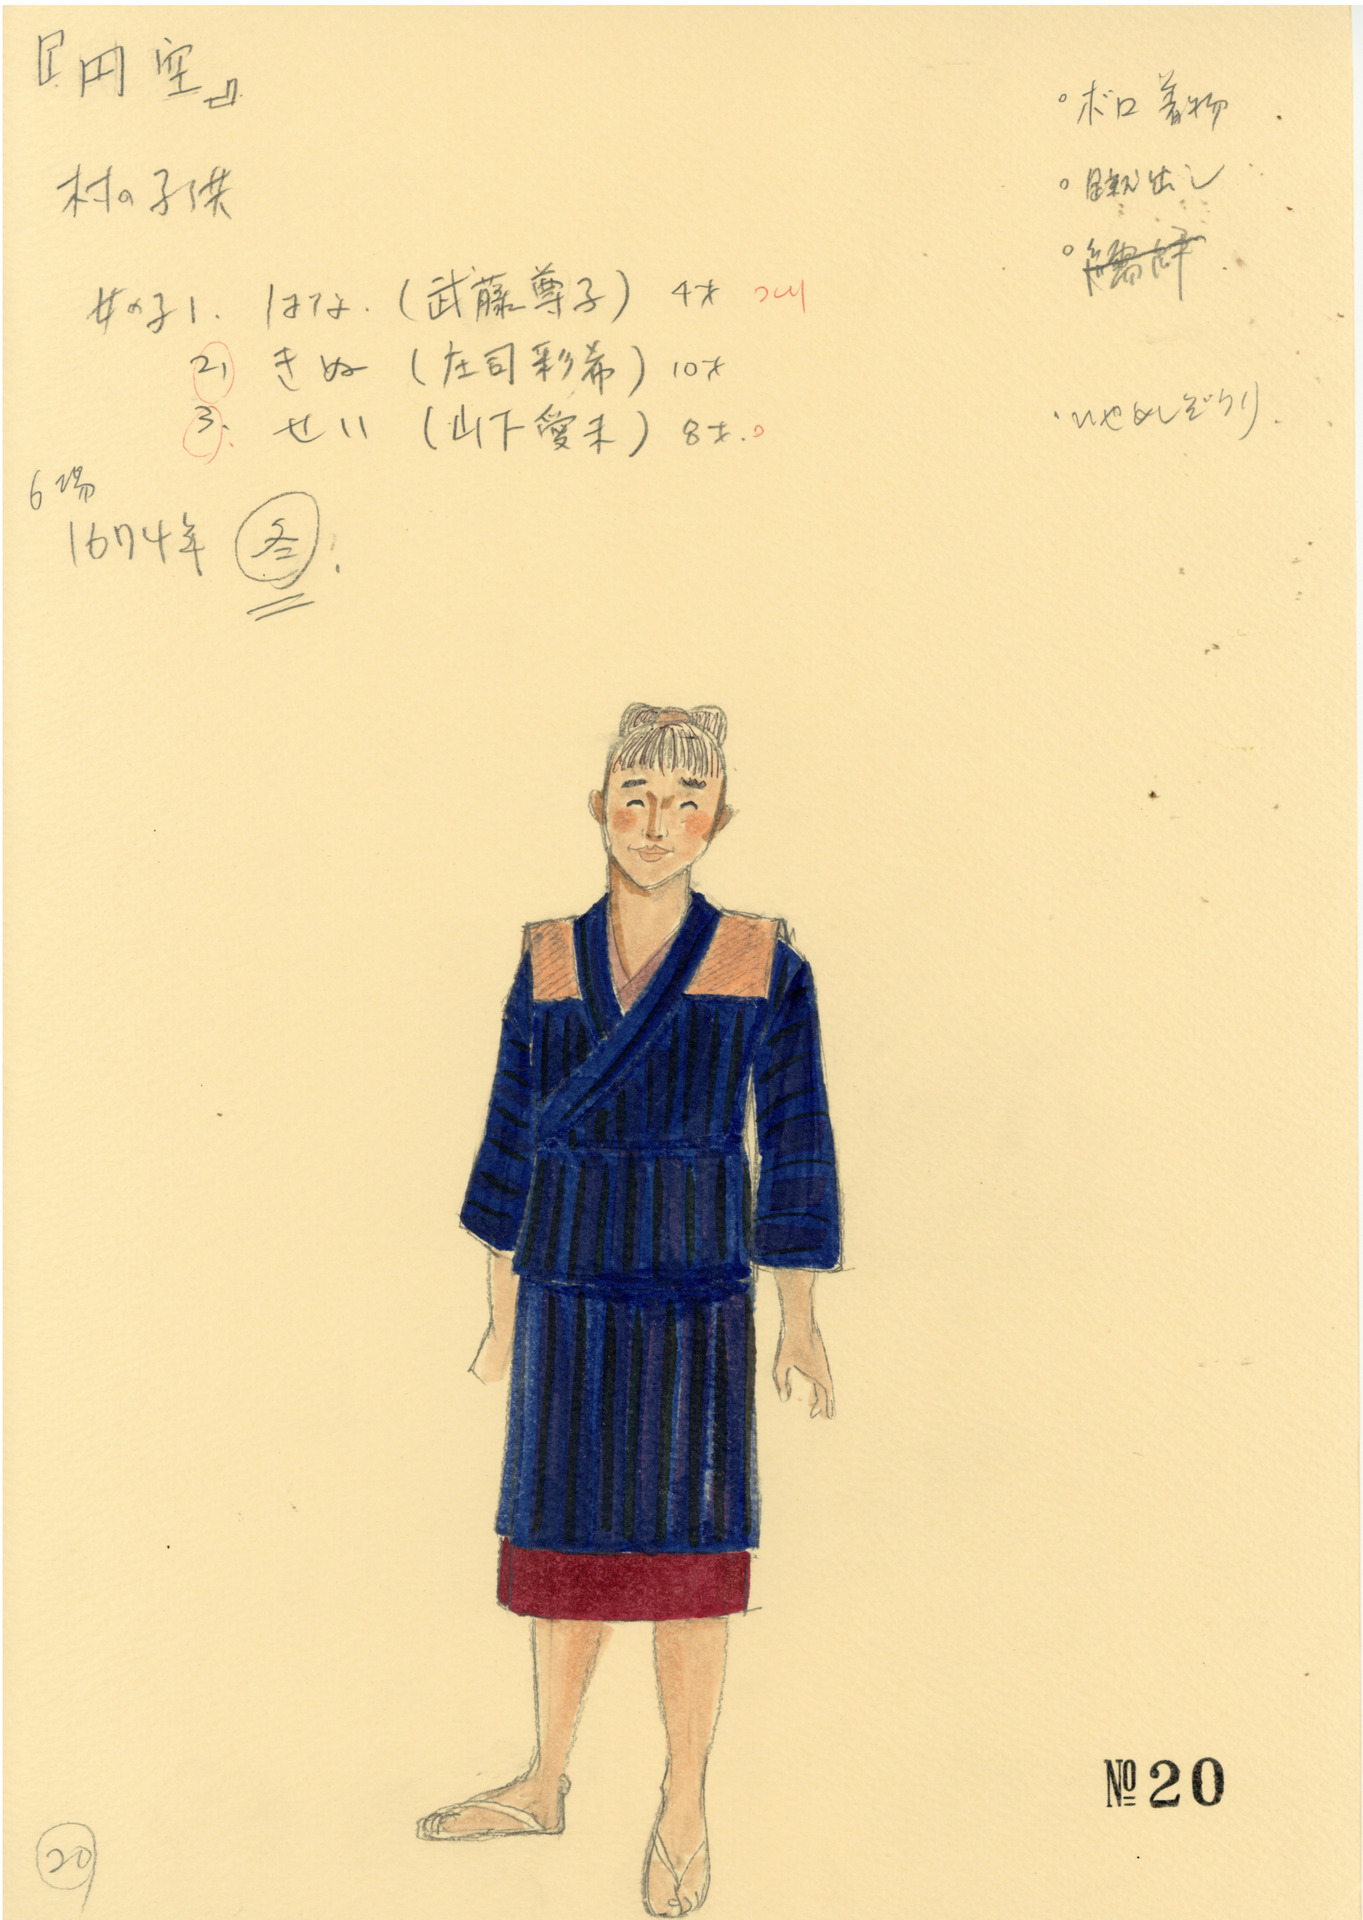 『円空』
村の子供
女の子1. はな.（武藤尊子）4才
2, きぬ（庄司彩希）10才
3. せい（山下愛未）8才.
6場
1674年 冬
。ボロ着物
出し
ぞうり.
№20
20